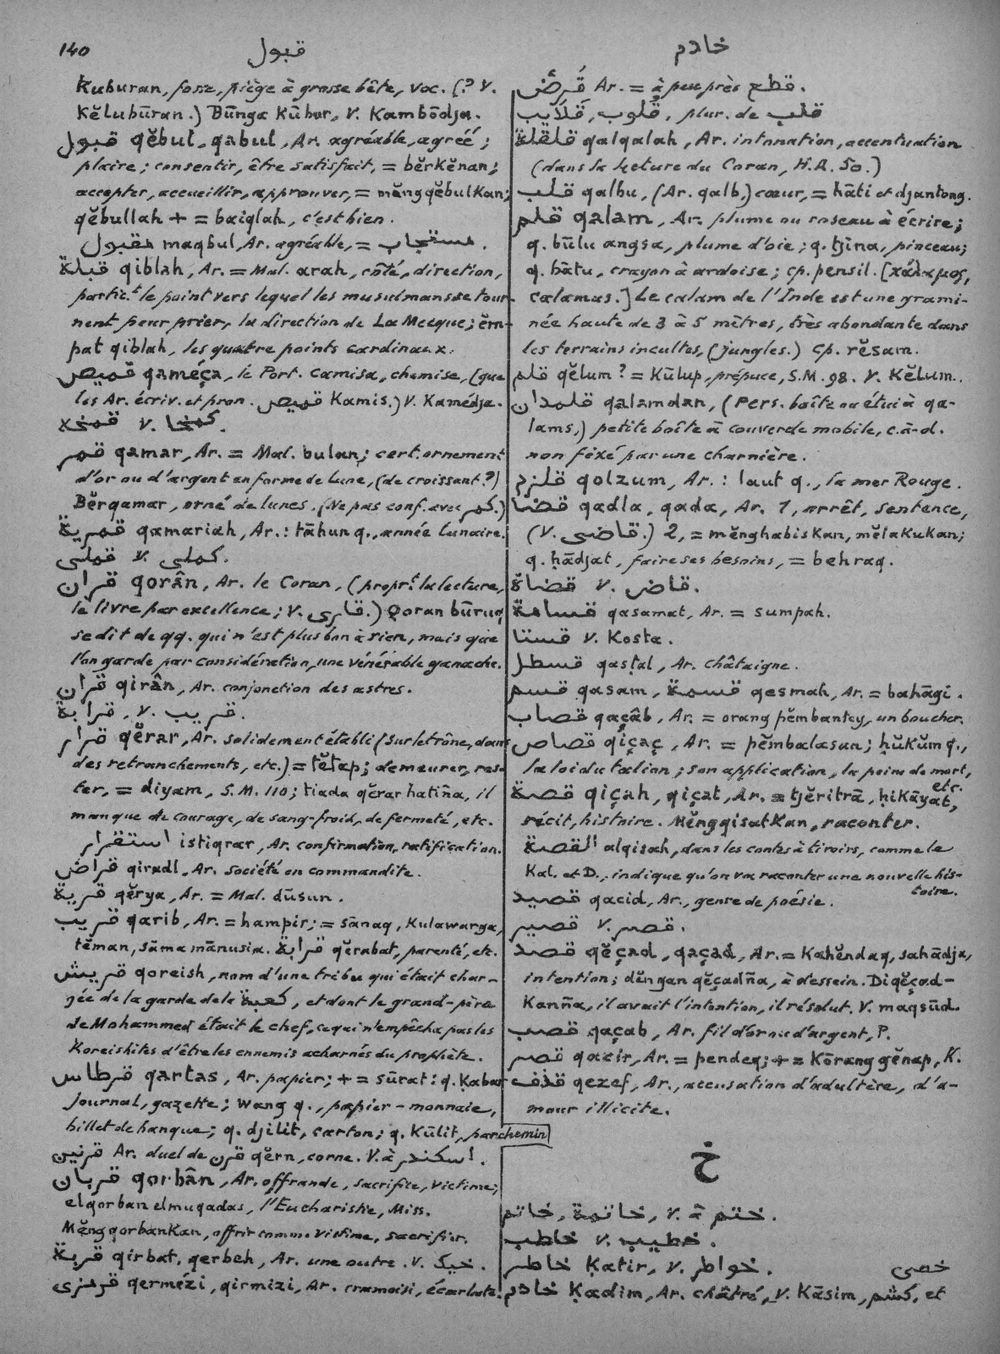 140
قبول
خادم
Kuburan, fosse, piège à grosse bête, voc. (? V.
Kĕlubūran.) Būnga Kūbur, V. Kambōdja.
قبول qĕbul, qabul, Ar. agréable, agréé;
plaire; consentir, être satisfait, = bĕrkĕnan;
accepter, accueillir, approuver, = mĕngqĕbulkan;
qĕbullah + = baiqlah, c'est bien.
مقبول maqbul, Ar. agréable, = مستجاب.
قبلة qiblah, Ar. = Mal. arah, côté, direction,
partict le point vers lequel les musulmans se tour-
nent pour prier, la direction de La Mecque; ĕm-
pat qiblah, les quatre points cardinaux.
قميص qameça, le Port. camisa, chemise, (que
les Ar. écriv. et pron. قميص Kamis.) V. Kamédja.
قمخه V. كمخا.
قمر qamar, Ar. = Mal. bulan; cert. ornement
d'or ou d'argent en forme de lune, (de croissant?)
Bĕrqamar, orné de lunes. (Ne pas conf. avec كمر.)
قمرية qamariah, Ar.: tāhun q., année lunaire.
قملى V. كملى.
قران qorân, Ar. le Coran, (proprt la lecture,
le livre par excellence; V. قارى.) Qoran būruq
se dit de qq. qui n'est plus bon à rien, mais que
l'on garde par considération, une vénérable ganache.
قران qirân, Ar. conjonction des astres.
قرابة, V. قريب.
قرار qĕrar, Ar. solidement établi (sur le trône, dans
des retranchements, etc.) = tĕtap; demeurer, res-
ter, = diyam, S.M. 110; tiada qĕrar hatiña, il
manque de courage, de sang-froid, de fermeté, etc.
استقرار istiqrar, Ar. confirmation, ratification.
قراض qiradl, Ar. société en commandite.
قرية qĕrya, Ar. = Mal. dūsun.
قريب qarib, Ar. = hampir; = sānaq, Kulawarga,
tĕman, sāma mānusia. قرابة qĕrabat, parenté, etc.
قريش qoreish, nom d'une tribu qui était char-
gée de la garde de la كعبة, et dont le grand-père
de Mohammed était le chef, ce qui n'empêcha pas les
Koreishites d'être les ennemis acharnés du prophète.
قرطاس qartas, Ar. papier; + = sūrat: q. Kabar
journal, gazette; wang q., papier-monnaie,
billet de banque; q. djilit, carton; q. Kūlit, parchemin
قرنين Ar. duel de قرن qĕrn, corne. V. à اسكندر.
قربان qorbân, Ar. offrande, sacrifice, victime;
elqorban elmuqadas, l'Eucharistie, Miss.
Mĕngqorbankan, offrir comme victime, sacrifier.
قربة qirbat, qerbeh, Ar. une outre. V. خيك.
قرمزى qermézi, qirmizi, Ar. cramoisi, écarlate.
قرض Ar. = à peu près قطع.
قلوب, قلايب, plur. de قلب
قلقلة qalqalah, Ar. intonation, accentuation
(dans la lecture du Coran, H.A. 50.)
قلب qalbu, (Ar. qalb.) cœur, = hāti et djantong.
قلم qalam, Ar. plume ou roseau à écrire;
q. būlu angsa, plume d'oie; q. tjina, pinceau;
q. bātu, crayon à ardoise; cp. pensil. [κάλαμος,
calamus.] Le calam de l'Inde est une grami-
née haute de 3 à 5 mètres, très abondante dans
les terrains incultes, (jungles.) cp. rĕsam.
قلم qĕlum? = Kūlup, prépuce, S.M. 98. V. Kĕlum.
قلمدان qalamdan, (Pers. boîte ou étui à qa-
lams,) petite boîte à couvercle mobile, c.à-d.
non fixé par une charnière.
قلزم qolzum, Ar.: laut q., la mer Rouge.
قضا qadla, qada, Ar. 1, arrêt, sentence,
(V. قاضى.) 2, = mĕnghabiskan, mĕlakukan;
q. hādjat, faire ses besoins, = behraq.
قضاة V. قاض.
قسامة qasamat, Ar. = sumpah.
قستا V. Kosta.
قسطل qastal, Ar. châtaigne.
قسم qasam, قسمة qesmah, Ar. = bahāgi.
قصاب qaçâb, Ar. = orang pĕmbantey, un boucher.
قصاص qiçaç, Ar. = pĕmbalasan; ḥŭkŭm q.,
la loi du talion; son application, la peine de mort,
etc.
قصة qiçah, qiçat, Ar. = tjĕritrā, ḥikāyat,
récit, histoire. Mĕngqisatkan, raconter.
القصة alqisah, dans les contes à tiroirs, comme le
Kal. et D., indique qu'on va raconter une nouvelle his-
toire.
قصيد qacid, Ar., genre de poésie.
قصير V. قصر.
قصد qĕçad, qaçad, Ar. = Kahĕndaq, sahādja,
intention; dĕngan qĕçadña, à dessein. Diqĕçad-
Kanña, il avait l'intention, il résolut. V. maqsūd.
قصب qaçab, Ar. fil d'or ou d'argent, P.
قصر qacir, Ar. = pendeq; + = Kōrang gĕnap, K.
قذف qezef, Ar., accusation d'adultère, d'a-
mour illicite.
خ
خاتم, خاتمة, V. à ختم.
خاطب V. خطيب.
خاطر Ḳatir, V. خواطر.
خصى
خادم Ḳadim, Ar. châtré, V. Kāsim, كشم, et